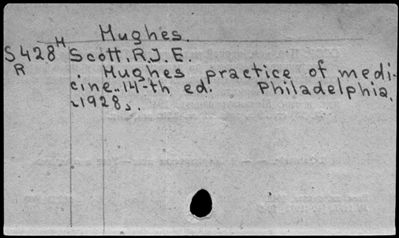 Hughes.
S428H Scott, R.J.E.
R . Hughes practice of medi-
cine. 14-th ed. Philadelphia.
1928.